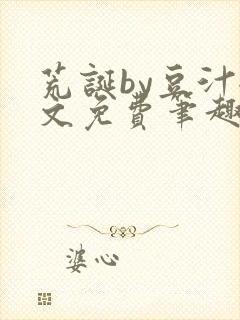 荒誕by豆汁
文免費筆趣
婆心